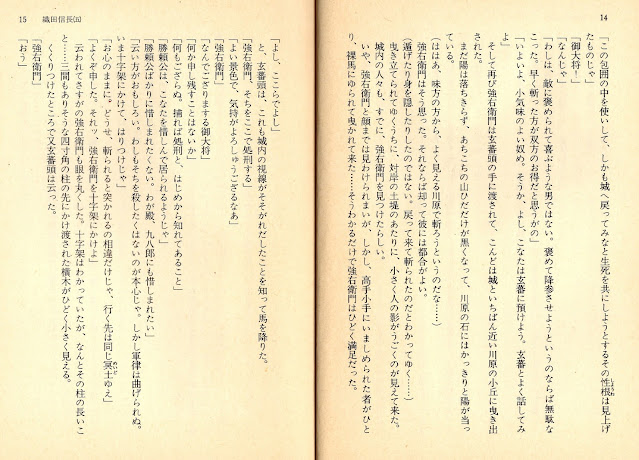 14
「この包囲の中を使いして、しかも城へ戻ってみなと生死を共にしようとするその性根は見上げ
たものじゃ」
「御大将！」
「なんじゃ」
「わしは、敵に褒められて喜ぶような男ではない。褒めて降参させようというのならば無駄な
こった。早く斬った方が双方のお得だと思うがの」
「いよいよ、小気味のよい奴め。そうか、よし、こなたは玄蕃に預けよう。玄蕃とよく話してみ
よ」
そして再び強右衛門は玄蕃頭の手に渡されて、こんどは城といちばん近い川原の小丘に曳き出
された。
まだ陽は落ちきらず、あちこちの山ひだだけが黒くなって、川原の石にはかっきりと陽が当っ
ている。
（ははあ、味方の方から、よく見える川原で斬ろうというのだな……）
強右衛門はそう思った。それならば却って彼には都合がよい。
（逃げたり身を隠したりしたのではない。戻って来て斬られたのだとわかってゆく……）
曳き立てられてゆくうちに、対岸の土堤のあたりに、小さく人の影がうごくのが見えて来た。
城内の人々も、すでに、強右衛門を見つけたらしい。
いや、むろん、強右衛門と顔までは見わけられまいが、しかし、高手小手にいましめられた者がひと
り、裸馬にゆられて曳かれて来た……そうわかるだけで強右衛門はひどく満足だった。
15　織田信長(五)
「よし、ここらでよし」
と、玄蕃頭は、これも城内の視線がそそがれだしたことを知って馬を降りた。
「強右衛門、そちをここで処刑する」
「よい景色で、気持がよろしゅうござるなあ」
「強右衛門」
「なんでござりまする御大将」
「何か申し残すことはないか」
「何もござらぬ。捕れば処刑と、はじめから知れてあること」
「勝頼公は、こなたを惜しんで居られるようじゃ」
「勝頼公ばかりに惜しまれたくない。わが殿、九八郎にも惜しまれたい」
「云い方がおもしろい。わしもそちを殺したくはないのが本心じゃ。しかし軍律は曲げられぬ。
いま十字架にかけて、はりつけじゃ」
「お心のままに。どうせ、斬られると突かれるの相違だけじゃ、行く先は同じ冥土ゆえ」
「よくぞ申した。それッ、強右衛門を十字架にかけよ」
云われてさすがの強右衛門も眼を丸くした。十字架はわかっていたが、なんとその柱の長いこ
と……三間もありそうな四寸角の柱の先にかけ渡された横木がひどく小さく見える。
くくりつけたところで又玄蕃頭は云った。
「強右衛門」
「おう」